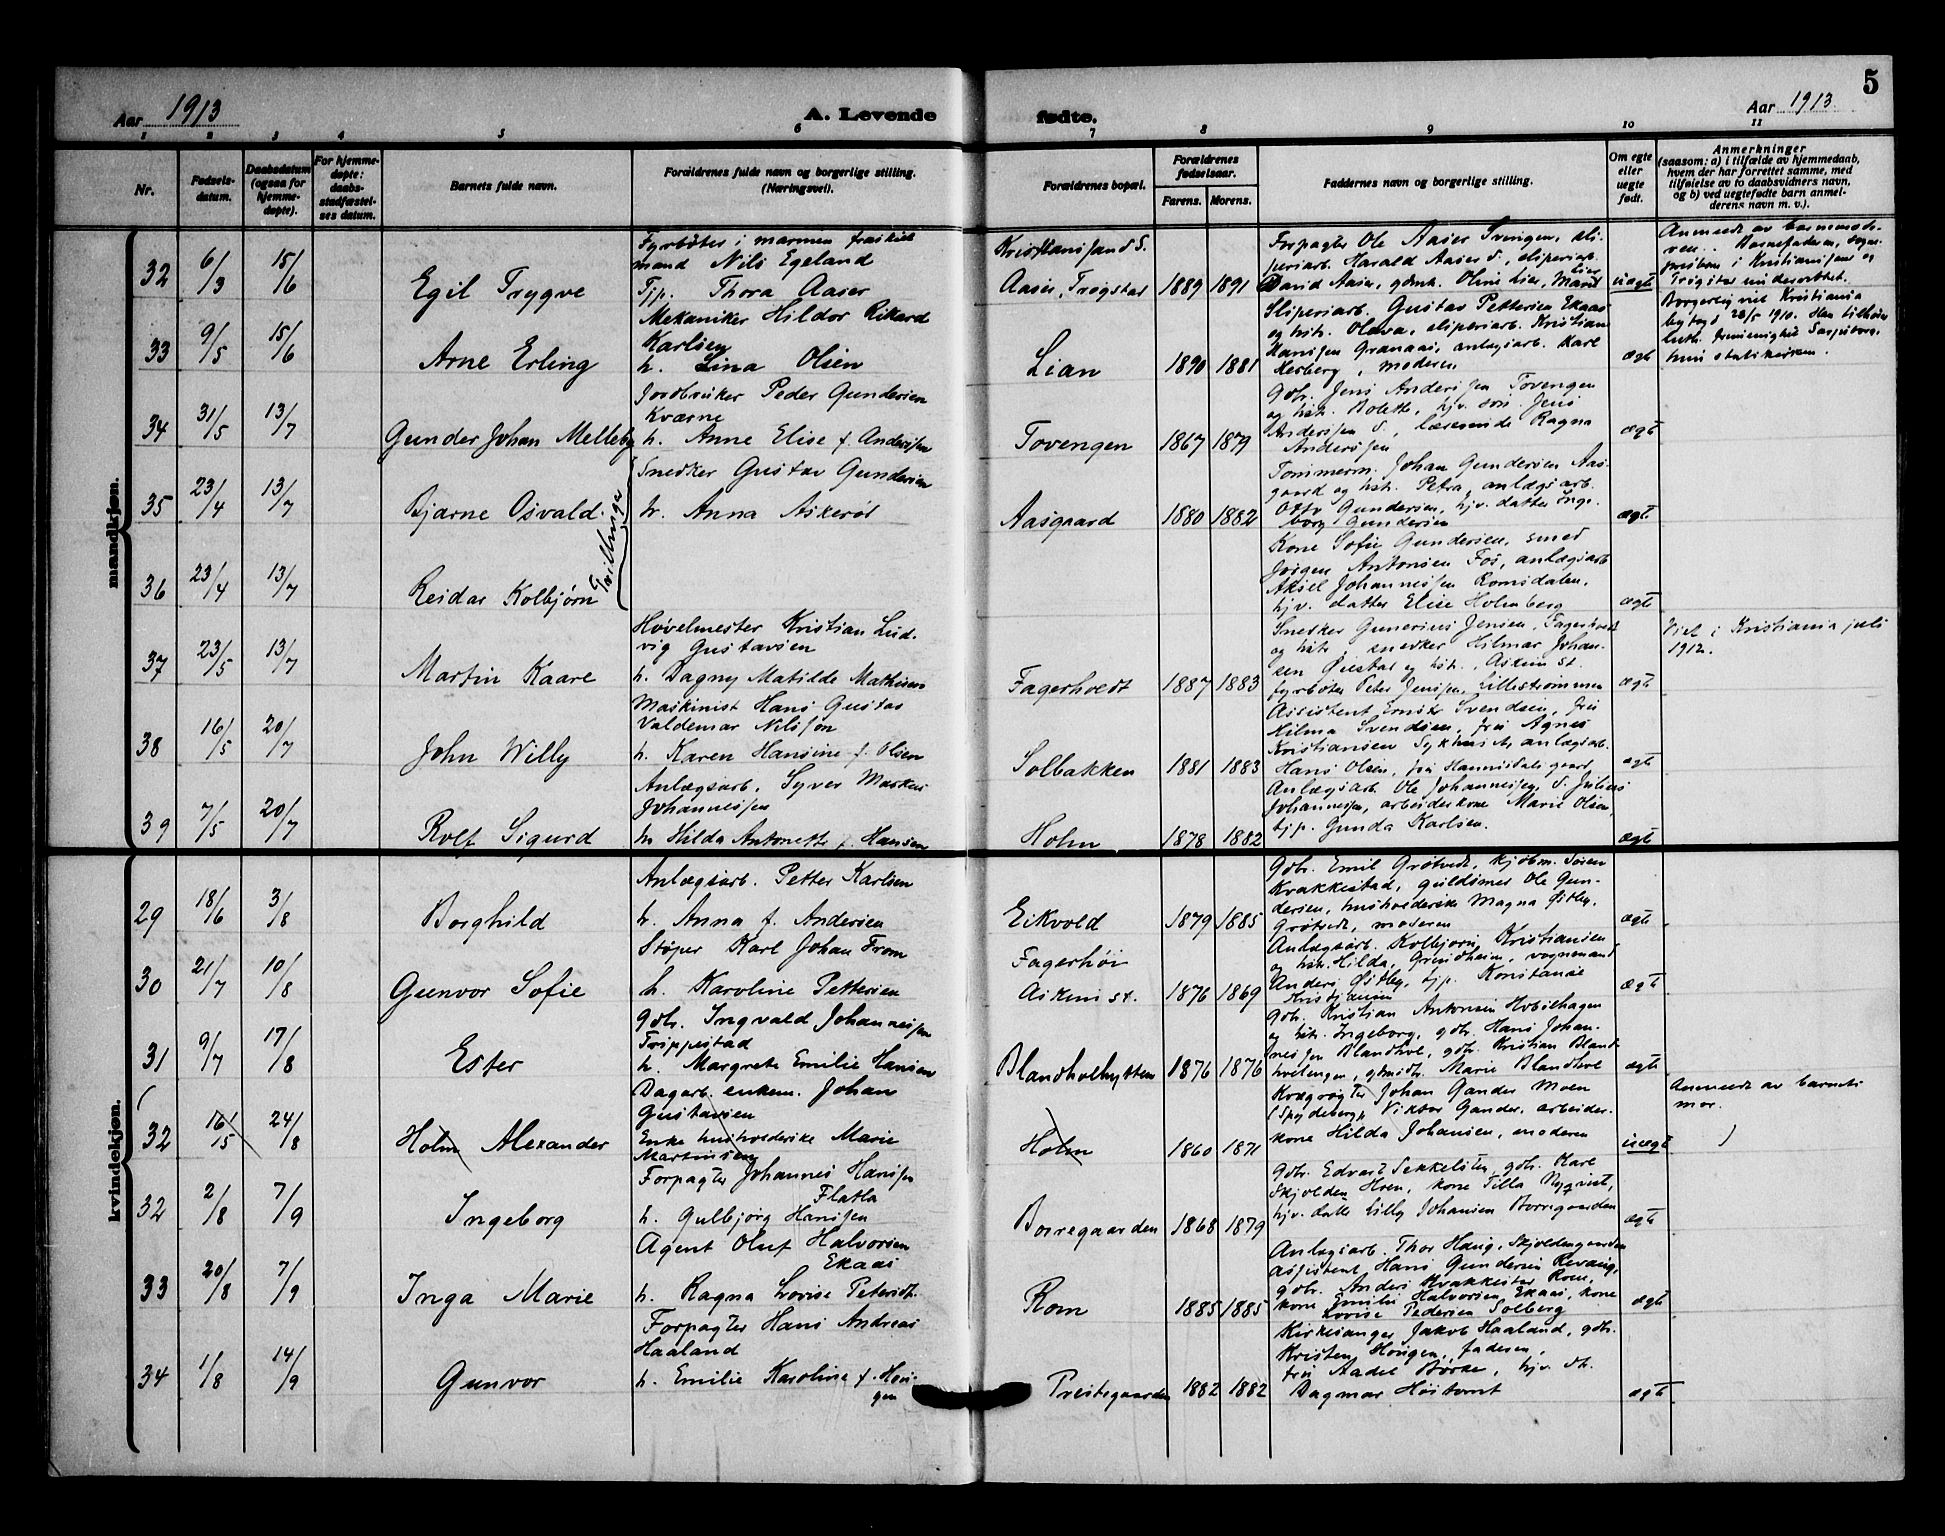 5
Aar 1913
A. Levende
fødte.
Aar 1913
1 2 3 4 5 6 7 8 9 10 11
Nr.
Fødsels-
datum.
Daabsdatum
(ogsaa for
hjemme-
døpte).
For hjemme-
døpte:
daabs-
stadfæstel-
ses datum.
Barnets fulde navn.
Forældrenes fulde navn og borgerlige stilling.
(Næringsvei).
Forældrenes bopæl.
Forældrenes
fødselsaar.
Farens. Morens.
Faddernes navn og borgerlige stilling.
Om egte
eller
uegte
født.
Anmerkninger
(saasom: a) i tilfælde av hjemmedaab,
hvem der har forrettet samme, med
tilføielse av to daabsvidners navn,
og b) ved uegtefødte barn anmel-
derens navn m. v.).
mandkjøn.
32 6/3 15/6 Egil Trygve
Fyrbøter i marinen fraskilt
mand Nils Egeland
Tjp. Thora Aaser
Kristiansand S.
Aaser, Trøgstad 1889 1891
Forpagter Ole Aaser
Harald Aaser
David Aaser
uægte
33 9/5 15/6 Arne Erling
Mekaniker Hildor Rikard
Karlsen
h. Lina Olsen
Lian 1890 1881
Sliperiarb. Gustav Pettersen Ekaas
og hstr. Olava, sliperiarb. Kristian
Hansen Granaas, anlægsarb. Karl
moderen
ægte
Borgerlig viet Kristiania
34 31/5 13/7 Gunder Johan Melleby
Jordbruker Peder Gundersen
Kværne
h. Anne Elise f. Andersen
Tovengen 1867 1879
Gbr. Jens Andersen Tovengen
og hstr. Bolette, hjv. søn Jens
Andersen S., læserinde Ragna
Andersen
ægte
35 23/4 13/7 Bjarne Osvald
Tvillinger
Snedker Gustav Gundersen
h. Anna Askerød
Aasgaard 1880 1882
Tømmerm. Johan Gundersen Aas-
gaard og hstr. Petra, anlægsarb.
Otto Gundersen, hjv. datter Inge-
borg Gundersen
ægte
36 23/4 13/7 Reidar Kolbjørn
Kone Sofie Gundersen, smed
Jørgen Antonsen Fos, anlægsarb
Aksel Johannessen Romsdalen,
hjv. datter Elise Holmberg
ægte
37 23/5 13/7 Martin Kaare
Høvelmester Kristian Lud-
vig Gustavsen
h. Dagny Matilde Mathisen
Fagertvedt 1887 1883
Snedker Gunerius Jensen, Fagertvedt
og hstr., snedker Hilmar Johan-
sen og hstr., Askim st.
fyrbøter Peter Jensen, Lillestrømmen
ægte
Viet i Kristiania juli
1912.
38 16/5 20/7 John Willy
Maskinist Hans Gustav
Valdemar Nilssen
h. Karen Hansine f. Olsen
Solbakken 1881 1883
Assistent Ernst Svendsen, frk
Hilma Svendsen, frk Agnes
Kristiansen Sykhuset, anlægsarb.
Hans Olsen
ægte
39 7/5 20/7 Rolf Sigurd
Anlægsarb. Syver Markus
Johannessen
h. Hilda Antonette f. Hansen
Holm 1878 1882
Anlægsarb Ole Johannessen, S. Julius
Johannessen, arbeiderkone Marie Olsen,
tjp. Gunda Karlsen.
ægte
kvindekjøn.
29 18/6 3/8 Borghild
Anlægsarb. Petter Karlsen
h. Anna f. Andersen
Eikvold 1879 1885
Gbr. Emil Grøtvedt, kjøbm. Søren
Krakkestad, guldsmed Ole Gun-
dersen, husholderske Magna Østby,
Grøtvedt, moderen
ægte
30 21/7 10/8 Gunvor Sofie
Støper Karl Johan From
h. Karoline Pettersen
Fagerhøi
Askim st. 1876 1869
Anlægsarb. Kolbjørn Kristiansen,
og hstr. Hilda, Grindheim, vognmand
Anders Østby, tjp. Konstanse
Kristiansen
ægte
31 9/7 17/8 Ester
Gbr. Ingvald Johannessen
Trippestad
h. Margrete Emilie Hansen
Blandholhytten 1876 1876
Gbr. Kristian Antonsen Hobølhagen
og hstr. Ingeborg, gbr. Hans Johan-
nessen Blandhol, gbr. Kristian Bland-
holengen, gbrdtr. Marie Blandhol
ægte
32 16/5 24/8 Holm Alexander
Dagarb. enkem. Johan
Gustavsen
Enke husholderske Marie
Martinsen
Holm 1860 1871
Krøgrøgter Johan Gander Moen
(Spydeberg), Viktor Gander, arbeider-
kone Hilda Johansen, moderen
uægte
Anmeldt av barnets
mor.
32 2/8 7/9 Ingeborg
Forpagter Johannes Hansen
Flatla
h. Gulbjørg Hansen
Borregaarden 1868 1879
Gbr. Edvart Sekkelsten, gbr. Karl
Skjolden Hoen, kone Tilla Nyqvist,
hjv. datter Lilly Johansen Borregaarden
ægte
33 20/8 7/9 Inga Marie
Agent Oluf Halvorsen
Ekaas
h. Ragna Lovise Petersdt.
Rom 1885 1885
Anlægsarb. Thor Haug, Skjoldengaarden
assistent Hans Gundersen Revaug,
gbr. Anders Krakkestad Rom,
kone Emilie Halvorsen Ekaas, kone
Lovise Pedersen Solberg
ægte
34 1/8 14/9 Gunvor
Forpagter Hans Andreas
Haaland
h. Emilie Karoline f. Hou-
gen
Prestegaarden 1882 1882
Kirkesanger Jakob Haaland, gbr.
Kristen Hougen, faderen,
fru Aadel Børke, hjv. dt.
Dagmar Høitomt
ægte